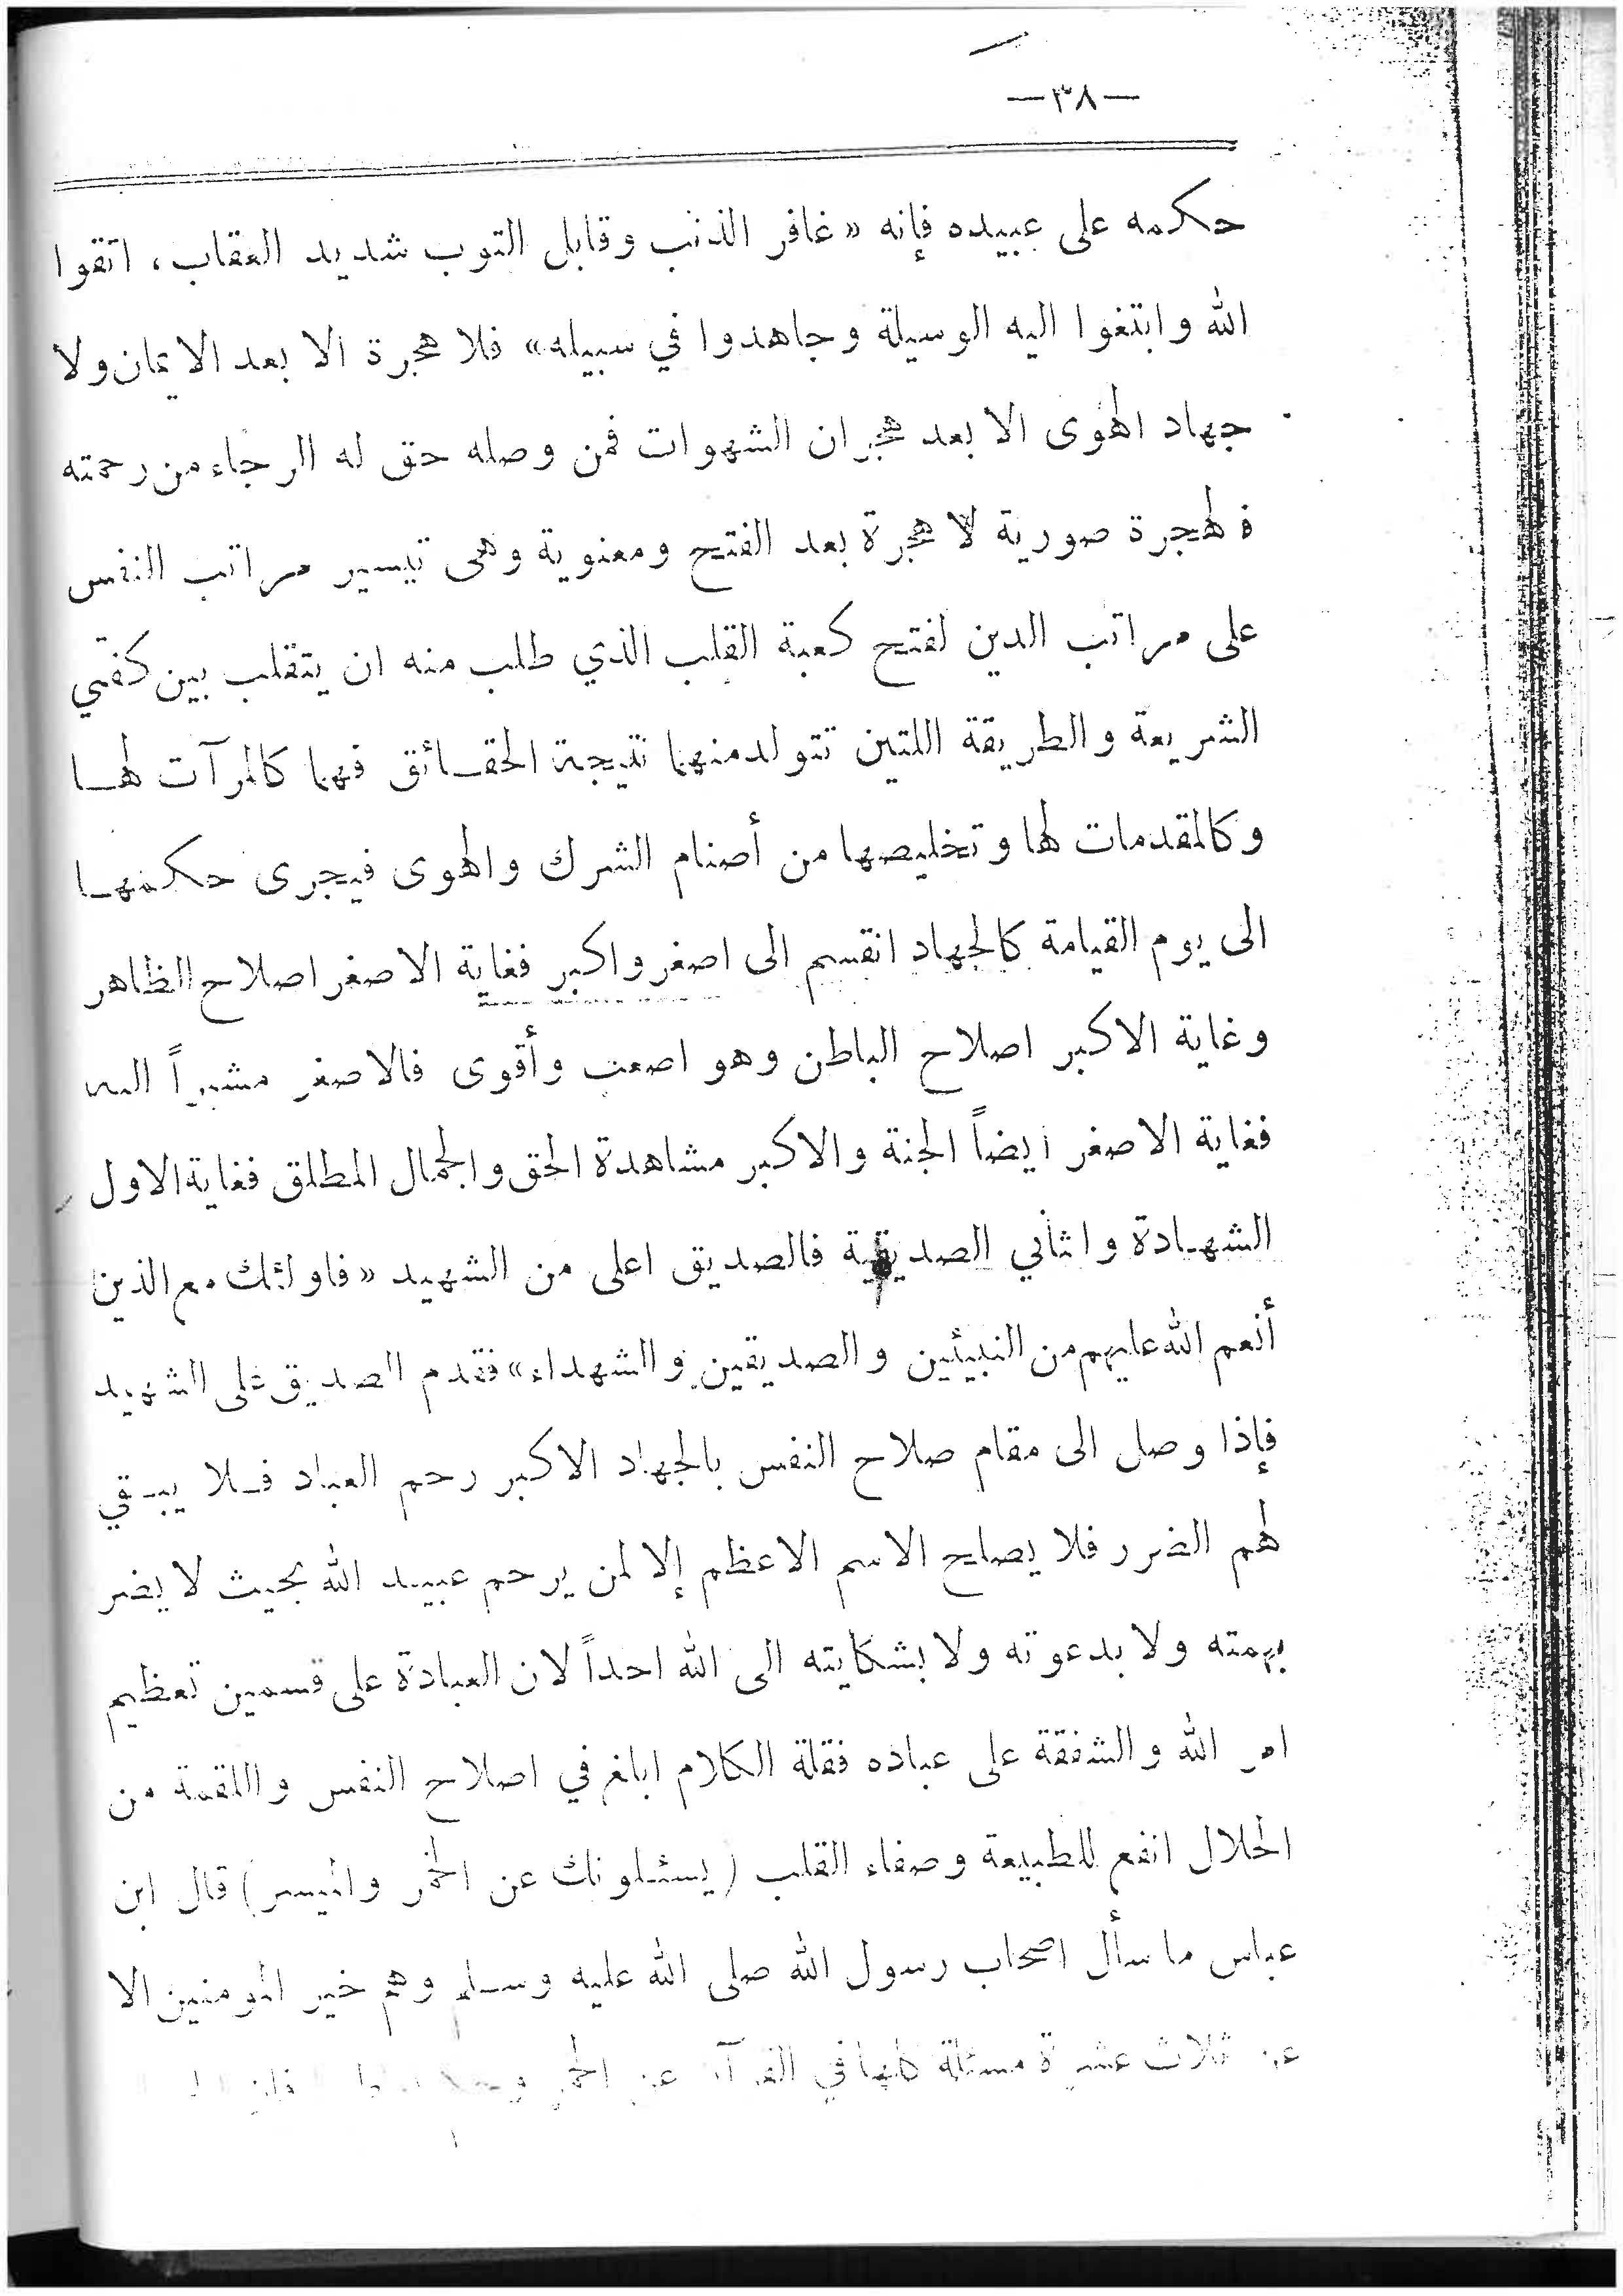 —٣٨—
حكمه على عبيده فإنه « غافر الذنب وقابل التوب شديد العقاب ، اتقوا
الله وابتغوا اليه الوسيلة وجاهدوا في سبيله » فلا هجرة الا بعد الايمان ولا
جهاد الهوى الا بعد هجران الشهوات فمن وصله حق له الرجاء من رحمته
فالهجرة صورية لا هجرة بعد الفتح ومعنوية وهى تيسير مراتب النفس
على مراتب الدين لفتح كعبة القلب الذي طلب منه ان يتقلب بين كفتي
الشريعة والطريقة اللتين تتولد منهما نتيجة الحقائق فهما كالمرآت لها
وكالمقدمات لها وتخليصها من أصنام الشرك والهوى فيجرى حكمها
الى يوم القيامة كالجهاد انقسم الى اصغر واكبر فغاية الاصغر اصلاح الظاهر
وغاية الاكبر اصلاح الباطن وهو اصعب وأقوى فالاصغر مشيراً اليه
فغاية الاصغر ايضاً الجنة والاكبر مشاهدة الحق والجمال المطلق فغاية الاول
الشهادة واثاني الصديقية فالصديق اعلى من الشهيد « فاولئك مع الذين
أنعم الله عليهم من النبيئين والصديقين والشهداء » فقدم الصديق على الشهيد
فإذا وصل الى مقام صلاح النفس بالجهاد الاكبر رحم العباد فلا يبقي
لهم الضرر فلا يصلح الاسم الاعظم إلا لمن يرحم عبيد الله بحيث لا يضر
بهمته ولا بدعوته ولا بشكايته الى الله احداً لان العبادة على قسمين تعظيم
امر الله والشفقة على عباده فقلة الكلام ابلغ في اصلاح النفس واللقمة من
الحلال انفع للطبيعة وصفاء القلب ( يسئلونك عن الخمر والميسر ) قال ابن
عباس ما سأل اصحاب رسول الله صلى الله عليه وسلم وهم خير المومنين الا
عن ثلاث عشرة مسئلة كلها في القرآن عن الخمر